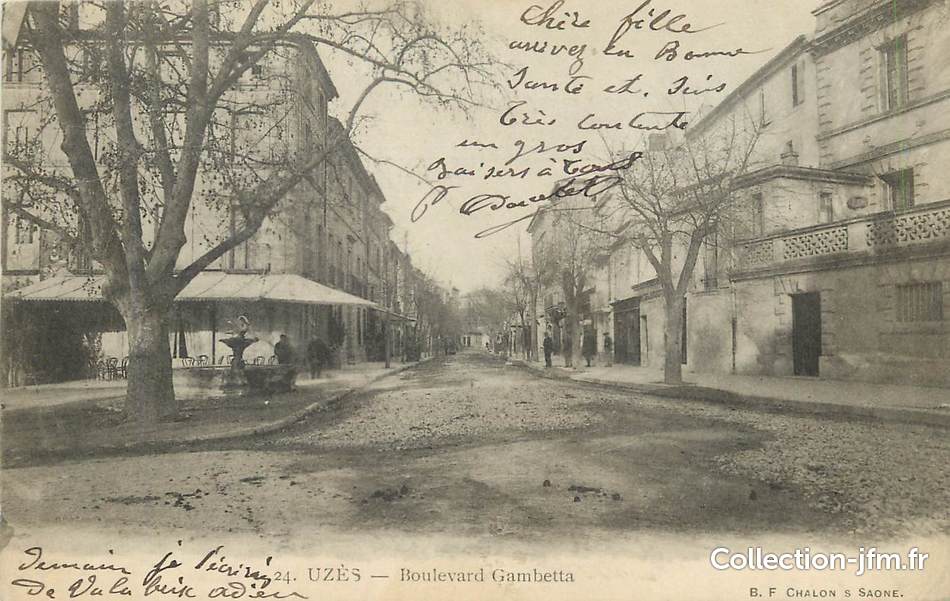 Chère fille
arrivez en Bonne
Sante et. Suis
très contente
un gros
Baisers à Tous
Demain je t'écrirai
de Valabrix adieu
24. UZÈS — Boulevard Gambetta
Collection-jfm.fr
B. F CHALON S SAONE.